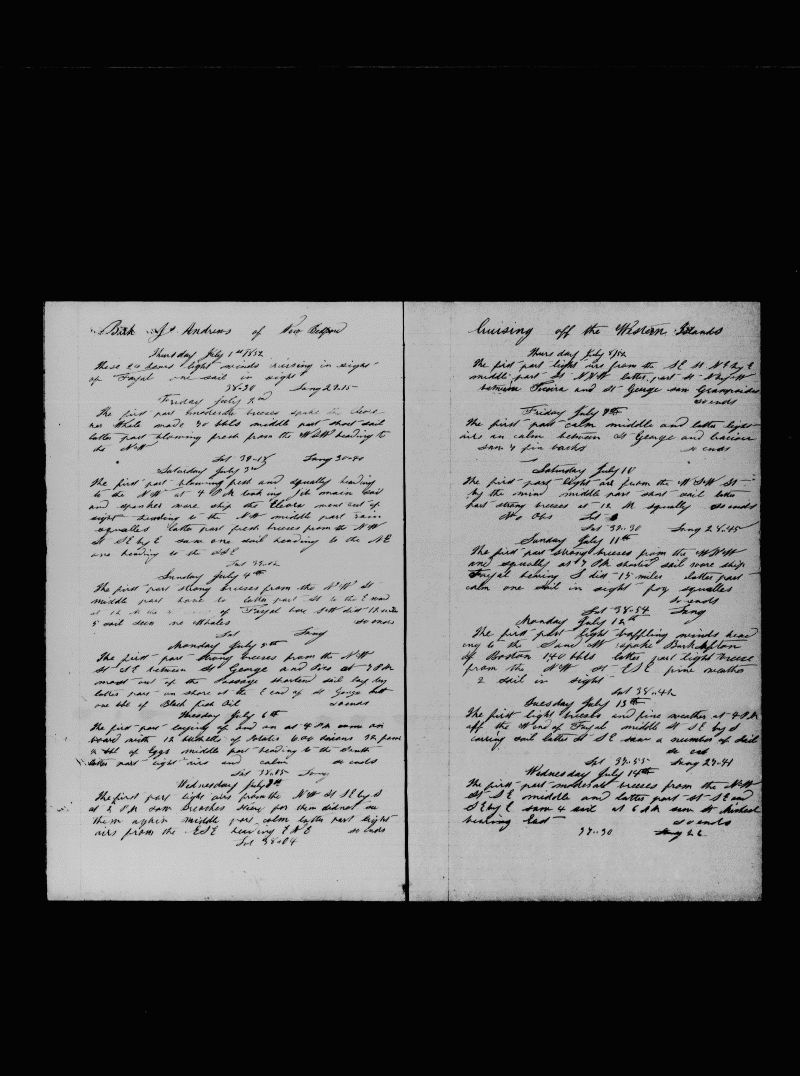 Bark St Andrews of New Bedford
Thursday July 1st 1852
These 24 hours light winds cruising in sight
of Fayal one sail in sight
38-30 Long 29-15
Friday July 2nd
The first part moderate breeses spoke the Cleora
Whale made 90 bbls middle part short sail
latter part blowing fresh from the WSW heading to
the NW
Lat 39-15 Long 30-40
Saturday July 3rd
The first part blowing fresh and squally heading
to the NW at 4 PM took in jib main sail
and spanker wore ship the Cleora went out of
sight heading to the NW middle part rain
squalls latter part fresh breeses from the NW
St SE by E saw one sail heading to the NE
one heading to the SSE
Sunday July 4th
The first part strong breeses from the NW St
middle part hove to latter part St to the E ward
of Fayal bore SW dist 18 miles
5 sail seen no Whales so ends
Lat Long
Monday July 5th
The first part strong breeses from the NW
St SE between St George and at 7 PM
most out of the Passage shortend sail lay by
latter part on shore at the E end of St George
one bbl of Black fish Oil so ends
Tuesday July 6th
The first part laying off and on at 4 PM came on
board with 12 of Potatoes 600
of Eggs middle part heading to the South
latter part light airs and calm so ends
Lat 38.05 Long
Wednesday July 7th
The first part light airs from the NW St SE by S
at 2 PM saw breaches for them did not see
them again middle part calm latter part light
airs from the ESE heading ENE so ends
Lat 38-04
Cruising off the Western Islands
Thursday July 8/52
The first part light airs from the SE St NE by E
middle part St NNW latter part St N by W
between Tercira and St George saw Grampuses
so ends
Friday July 9th
The first part calm middle and latter light
airs an calm between St George and
saw 4 fin backs so ends
Saturday July 10
The first part light air from the WSW St
by the wind middle part short sail latter
part strong breeses at 12 M squally so ends
No Obs Lat
Lat 39-30 Long 28-45
Sunday July 11th
The first part strong breeses from the WNW
and squally at 7 PM shortd sail wore ship
Fayal bearing S dist 15 miles latter part
calm one sail in sight foy squalls
so ends
Lat 38-54 Long
Monday July 12th
The first part light baffling winds head
ing to the Sam W spoke Bark
of Boston 140 bbls latter part light breese
from the NW St ESE fine weather
2 sail in sight
Lat 38-42
Tuesday July 13th
The first light breeses and fine weather at 4 PM
off the W end of Fayal middle St SE by S
carring sail latter St SE saw a number of sail
so end
Lat 37-55 Long 27-41
Wednesday July 14th
The first part moderate breeses from the NW
St SE middle and latter part St SE and
SE by E saw 4 sail at 6 AM saw St Michael
bearing East so ends
37-30 Long 26